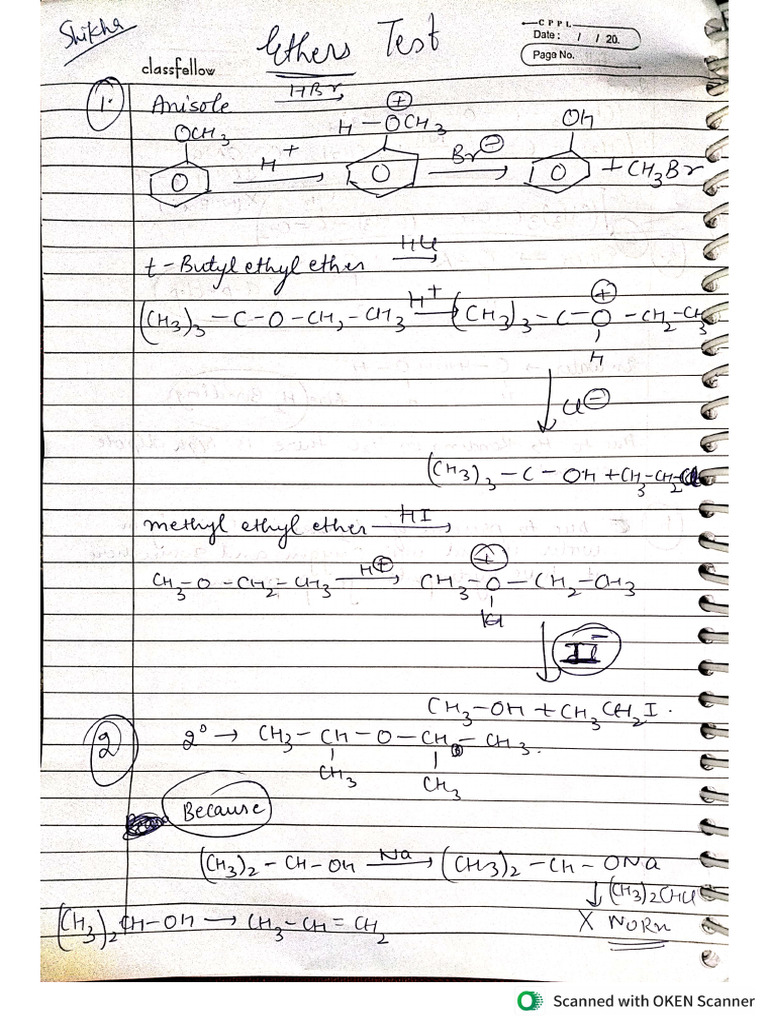 Shikha
Ethers Test
CPPL
Date: / / 20.
Page No.
classfellow
1. Anisole HBr →
OCH3 H+ → H – OCH3 ⊕ Br⊖ → OH + CH3Br
t – Butyl ethyl ether HCl →
(CH3)3 – C – O – CH2 – CH3 H+ → (CH3)3 – C – O – CH2 – CH3
⊕
H
↓ Cl⊖
(CH3)3 – C – OH + CH3 – CH2
methyl ethyl ether HI →
CH3 – O – CH2 – CH3 H⊕ → CH3 – O – CH2 – CH3
⊕
H
↓ I⁻
CH3 – OH + CH3CH2I.
2 2° → CH3 – CH – O – CH – CH3.
CH3 CH3
Because
(CH3)2 – CH – OH Na → (CH3)2 – CH – ONa
↓ (CH3)2CHCl
(CH3)2 CH – OH → CH3 – CH = CH2 X NORxn
Scanned with OKEN Scanner